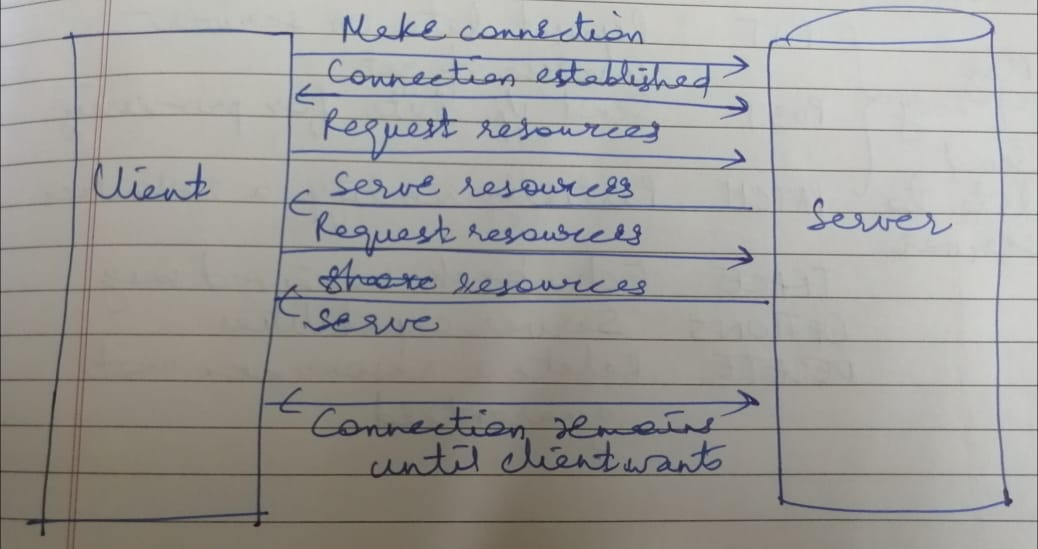 Make connection
Connection established
Request resources
Client
Serve resources
Server
Request resources
Share resources
Serve
Connection remains
until client wants